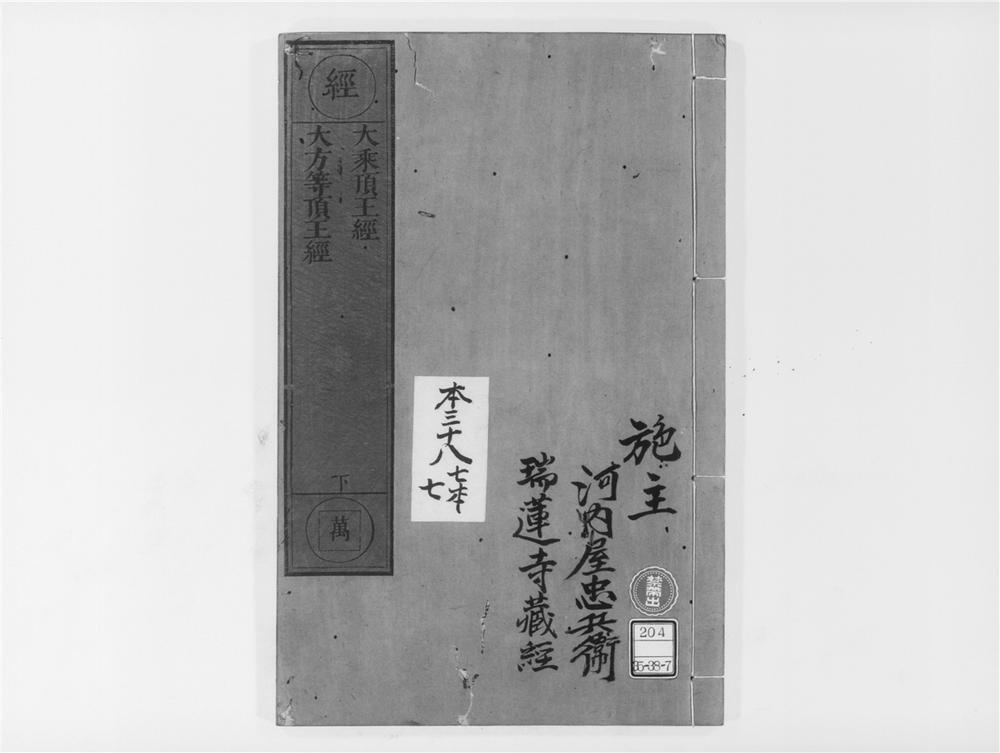 經
大乘頂王經
大方等頂王經
下
萬
本三十八
七本
七
施主
河内屋忠兵衛
瑞蓮寺藏經
禁帶出
204
35-38-7